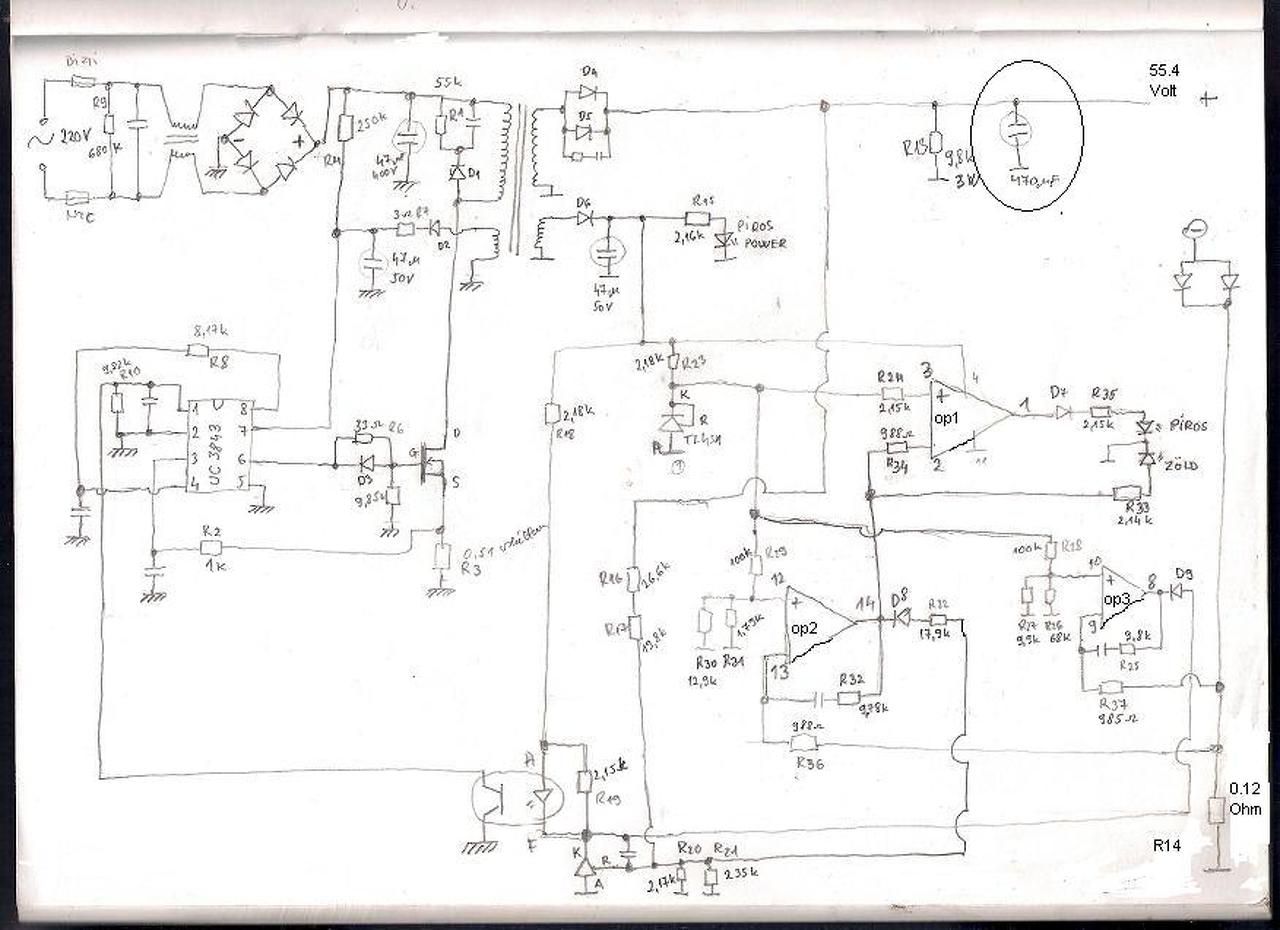 Bizti
R9
680K
220V
NTC
-
+
250K
R11
47µF
400V
55k
R1
D1
3Ω R7
D2
47µ
50V
D4
D5
D6
47µ
50V
R15
2,16k
PIROS
POWER
R13
9,8k
3W
470µF
55.4
Volt
+
-
8,17k
R8
9,82k
R10
1
2
3
4
UC3843
8
7
6
5
33Ω R6
D3
9,85k
G
D
S
R2
1K
0,51
R3
2,18k
R18
2,18k
R23
K
R
A
TL431
R24
2,15k
3
4
+
op1
988Ω
R34
2
11
1
D7
R35
2,15k
PIROS
ZÖLD
R33
2,14k
R16
26,6k
R17
19,8k
100k
R29
12
+
op2
13
14
R30
12,9k
R31
1,79k
D8
R22
17,9k
R32
9,78k
988Ω
R36
100k
R28
R27
9,9k
R26
68k
10
+
op3
9
8
D9
9,8k
R25
R37
985Ω
A
2,15k
R19
K
R
A
R20
2,17k
R21
235k
0.12
Ohm
R14